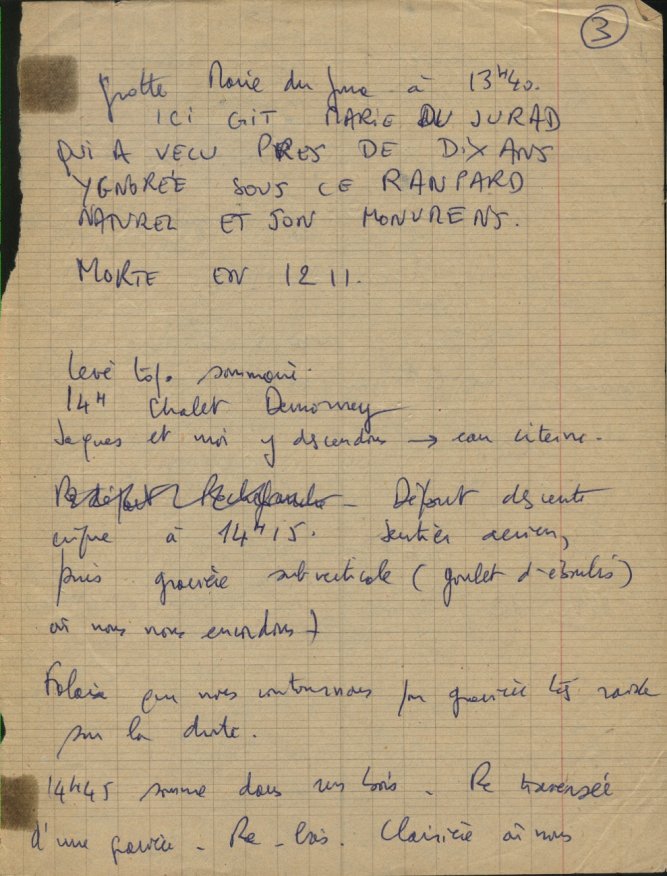 3
Grotte Marie du Jura à 13H40.
ICI GIT MARIE DU JURAD
QUI A VECU PRES DE DIX ANS
YGNORÉE SOUS CE RANPARD
NATUREL ET SON MONUMENS.
MORTE EN 1211.
levé top. sommaire.
14H Chalet Demorney
Jaques et moi y descendons → eau citerne.
Départ descente
à 14H15. Sentier aerien,
puis gravière subverticale (goulet d'eboulis)
où nous nous encordons)
Falaise que nous contournons par gravière très raide
sur la droite.
14H45 somme dans un bois. Re traversée
d'une gravière - Re-bois. Clairière où nous